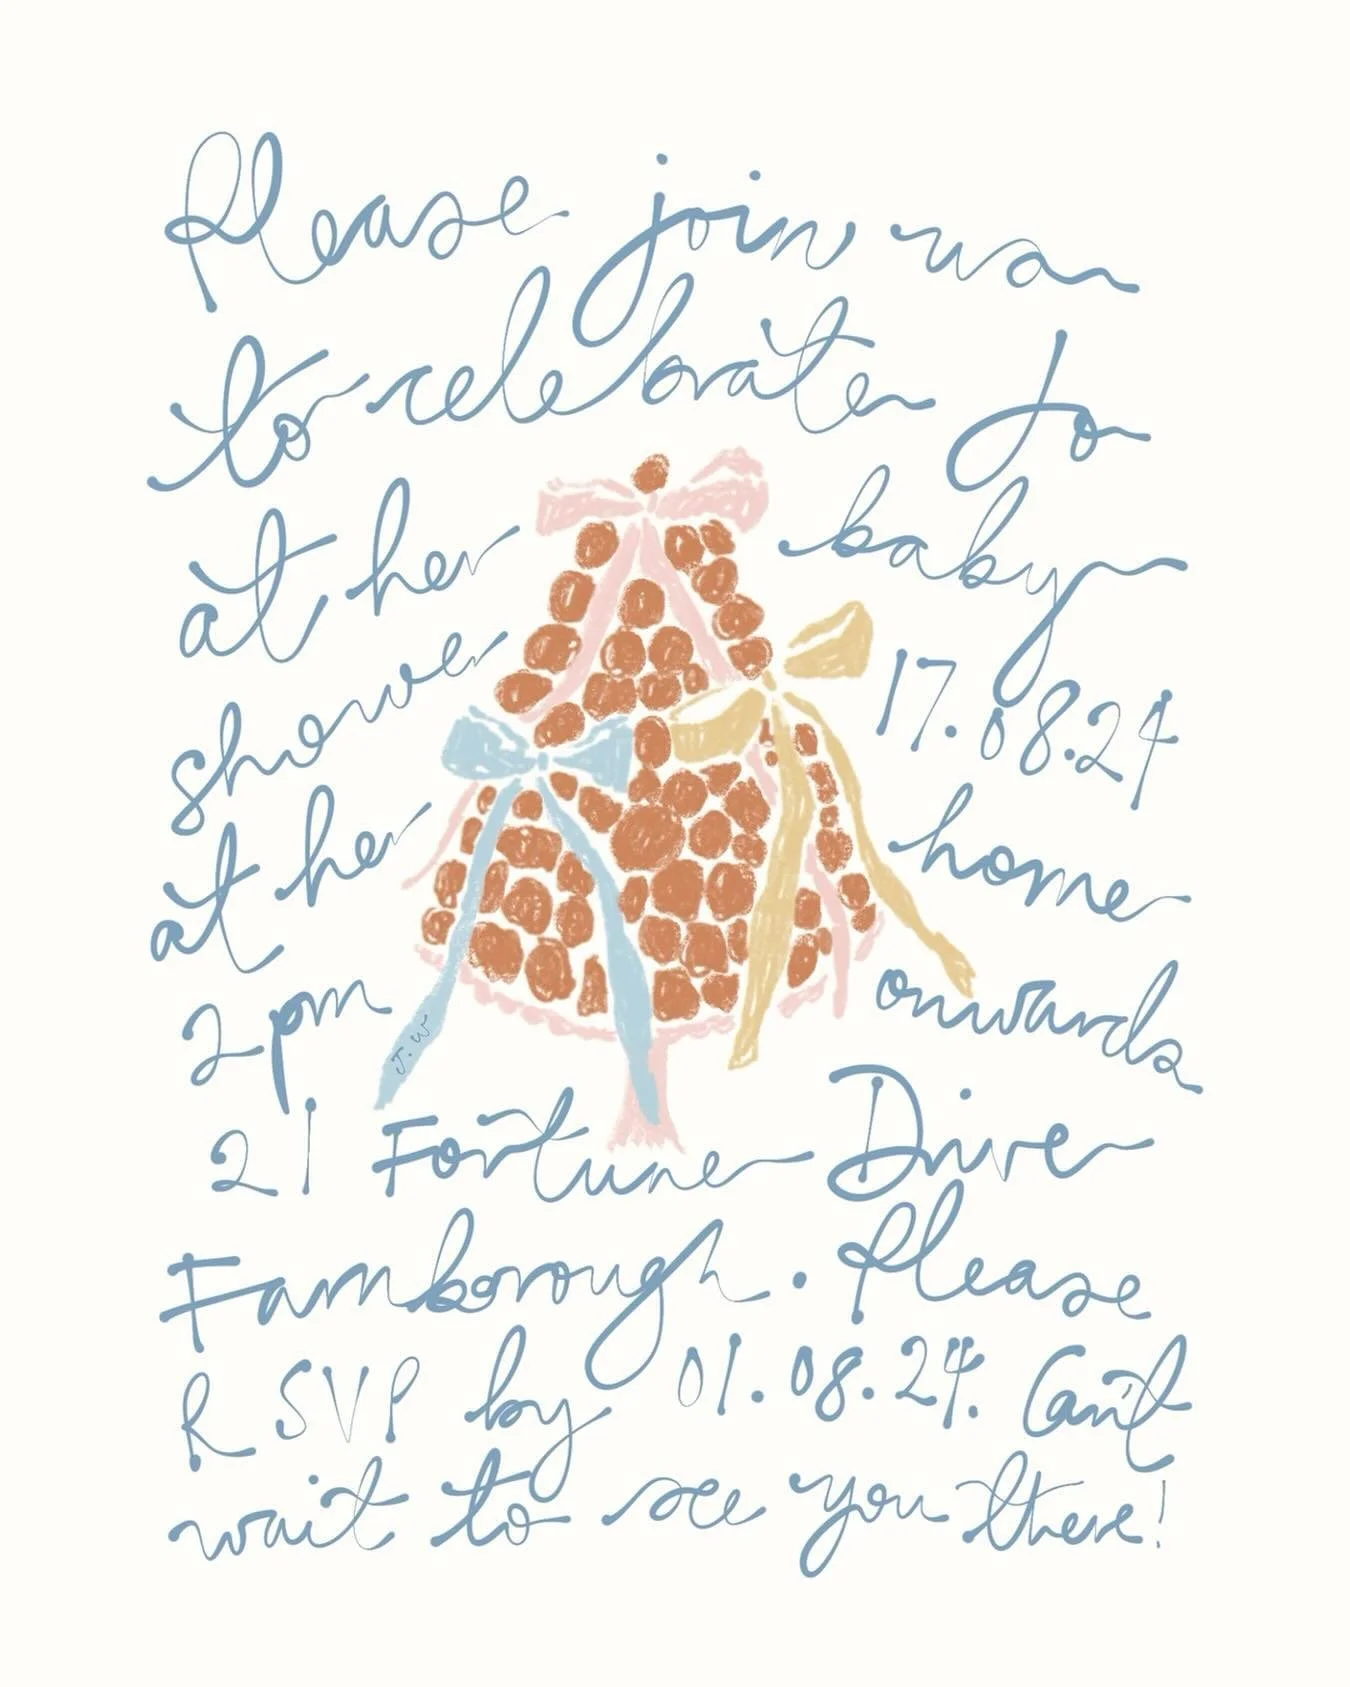 Please join us
to celebrate Jo
at her baby
shower 17.08.24
at her home
2pm onwards
J.W
21 Fortune Drive
Farnborough. Please
RSVP by 01.08.24. Can't
wait to see you there!